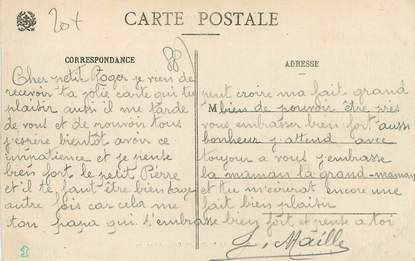 20+
CARTE POSTALE
(88)
CORRESPONDANCE
ADRESSE
Cher petit Roger je viens de
recevoir ta jolie carte qui tu
peut croire ma fait grand
plaisir aussi il me tarde
M bien de pouvoir être près
de vous et de pouvoir vous
vous embrasser bien fort aussi
j'espère bientôt avoir ce
bonheur j attend avec
impatience et je pense
toujour a vous j'embrasse
bien fort le petit Pierre
la maman la grand-maman
et il te faut être bien sage
et tu m'ecrirat encore une
autre fois car cela me
fait bien plaisir
ton papa qui t'embrasse bien fort et pense a toi
L. Maille